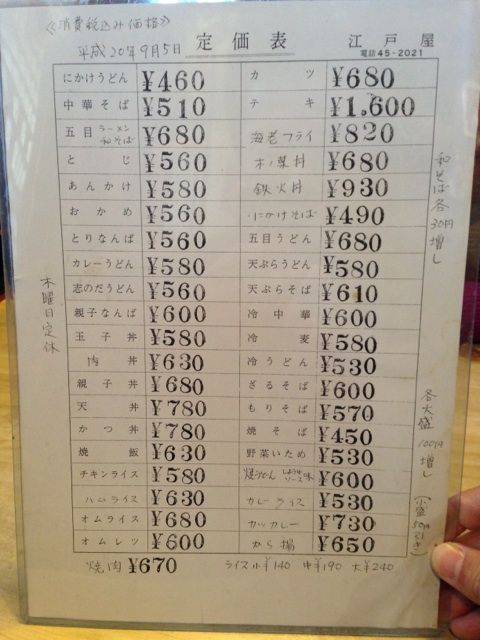 《消費税込み価格》
平成20年9月5日 定価表 江戸屋
電話45-2021
にかけうどん ¥460
中華そば ¥510
五目ラーメン和そば ¥680
とじ ¥560
あんかけ ¥580
おかめ ¥560
とりなんば ¥560
カレーうどん ¥580
志のだうどん ¥560
親子なんば ¥600
玉子丼 ¥580
肉丼 ¥630
親子丼 ¥680
天丼 ¥780
かつ丼 ¥780
焼飯 ¥630
チキンライス ¥580
ハムライス ¥630
オムライス ¥680
オムレツ ¥600
焼肉 ¥670
カツ ¥680
テキ ¥1.600
海老フライ ¥820
木ノ葉丼 ¥680
鉄火丼 ¥930
にかけそば ¥490
五目うどん ¥680
天ぷらうどん ¥580
天ぷらそば ¥610
冷中華 ¥600
冷麦 ¥580
冷うどん ¥530
ざるそば ¥600
もりそば ¥570
焼そば ¥450
野菜いため ¥530
焼うどん しょうゆソース味 ¥600
カレーライス ¥530
カツカレー ¥730
から揚 ¥650
ライス 小¥140 中¥190 大¥240
木曜日定休
和そば各30円増し
各大盛100円増し
(小盛50円引き)